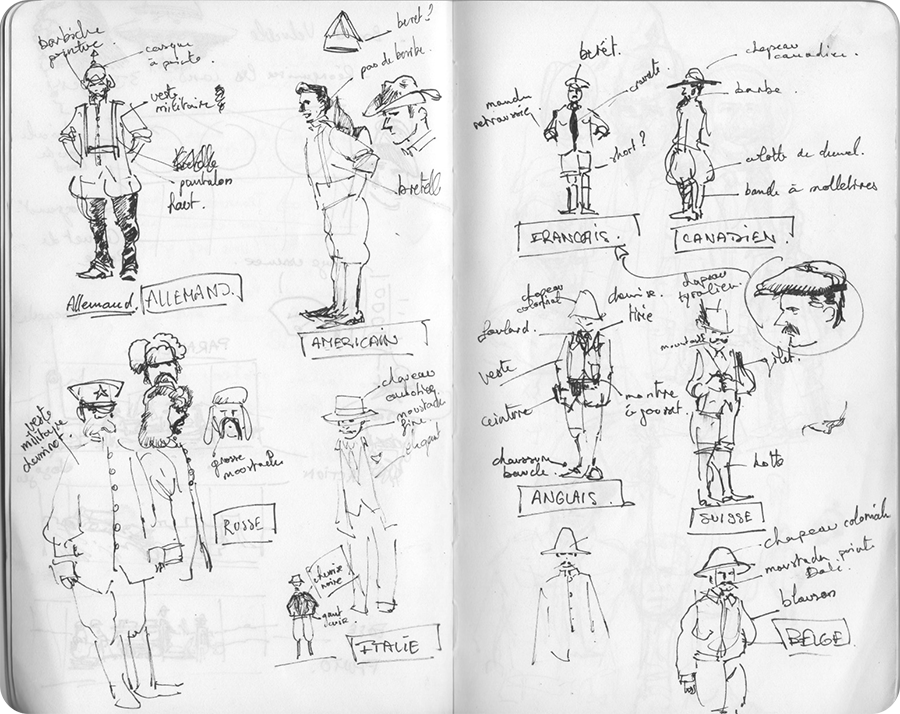 barbiche
pointue.
casque
à pointe.
veste
militaire
pantalon
haut.
Allemand.
ALLEMAND.
beret?
pas de barbe.
bretelle
AMERICAIN
veste
militaire
grosse
moustache
RUSSE
chapeau
moustache
fine.
chemise
noire
ITALIE
beret.
cravate
manche
retroussée.
short?
FRANÇAIS.
chapeau
canadien.
barbe.
culotte de cheval.
bande à molletières
CANADIEN.
chapeau
colonial
chemise
foulard.
veste
ceinture
montre
à gousset.
chausson
boucle.
ANGLAIS.
chapeau
tyrolien.
moustache
gilet.
botte
SUISSE
chapeau colonial
moustache pointe
Dali.
blouson
BELGE